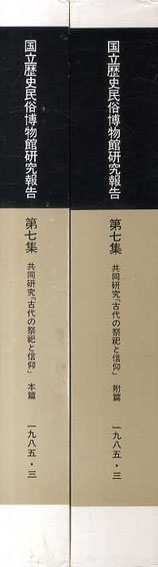 国立歴史民俗博物館研究報告
第七集
共同研究「古代の祭祀と信仰」　附篇
一九八五・三
国立歴史民俗博物館研究報告
第七集
共同研究「古代の祭祀と信仰」　本篇
一九八五・三